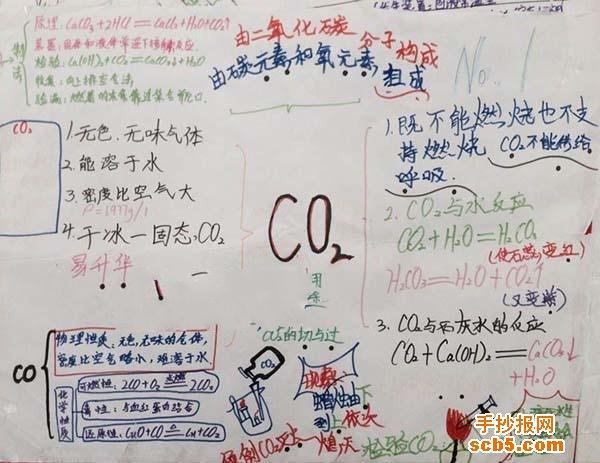 原理:CaCO3+2HCl═CaCl2+H2O+CO2↑
检验:Ca(OH)2+CO2═CaCO3↓+H2O
收集:向上排空气法
制法
由二氧化碳分子构成
由碳元素和氧元素组成
No.1
CO2
1.无色、无味气体
2.能溶于水
3.密度比空气大
4.干冰—固态CO2
易升华
CO2
用途
1.既不能燃烧也不支
持燃烧 CO2不能供给
呼吸.
2.CO2与水反应
CO2+H2O═H2CO3
(使石蕊变红)
H2CO3═H2O+CO2↑
(又变紫)
3.CO2与石灰水的反应
CO2+Ca(OH)2═CaCO3↓
+H2O
CO
物理性质:无色,无味的气体,
密度比空气略小,难溶于水
化学性质
可燃性:2CO+O2 点燃 2CO2
毒性:与血红蛋白结合
还原性:CuO+CO △ Cu+CO2
CO2的功与过
CO2
现象
蜡烛由下
到上依次
熄灭
倾倒CO2
检验CO2
手抄报网
scb5.com